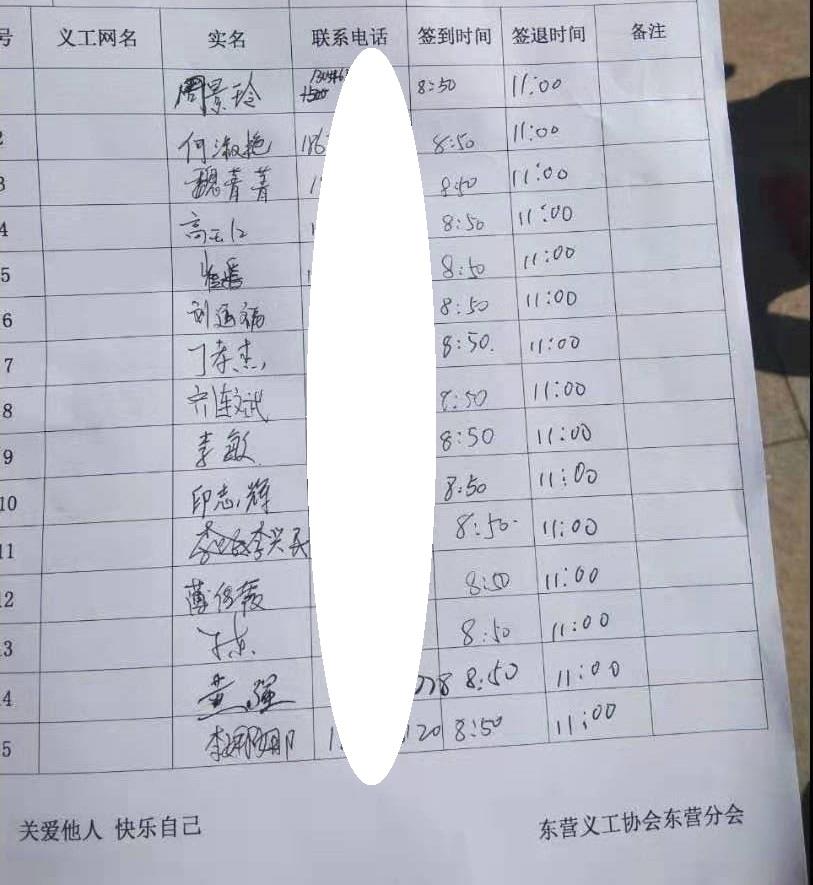 号 义工网名 实名 联系电话 签到时间 签退时间 备注
周景玲 8:50 11:00
2 何淑艳 186 8:50 11:00
3 魏菁菁 1 8:50 11:00
4 高 8:50 11:00
5 8:50 11:00
6 刘 福 8:50 11:00
7 丁孝杰 8:50. 11:00
8 8:50 11:00
9 李敏 8:50 11:00
10 印志辉 8:50 11:00
11 李兴民 8:50. 11:00
12 薄俊霞 8:50 11:00
13 8:50 11:00
14 黄强 8:50 11:00
15 李娜娜 1 20 8:50 11:00
关爱他人 快乐自己
东营义工协会东营分会